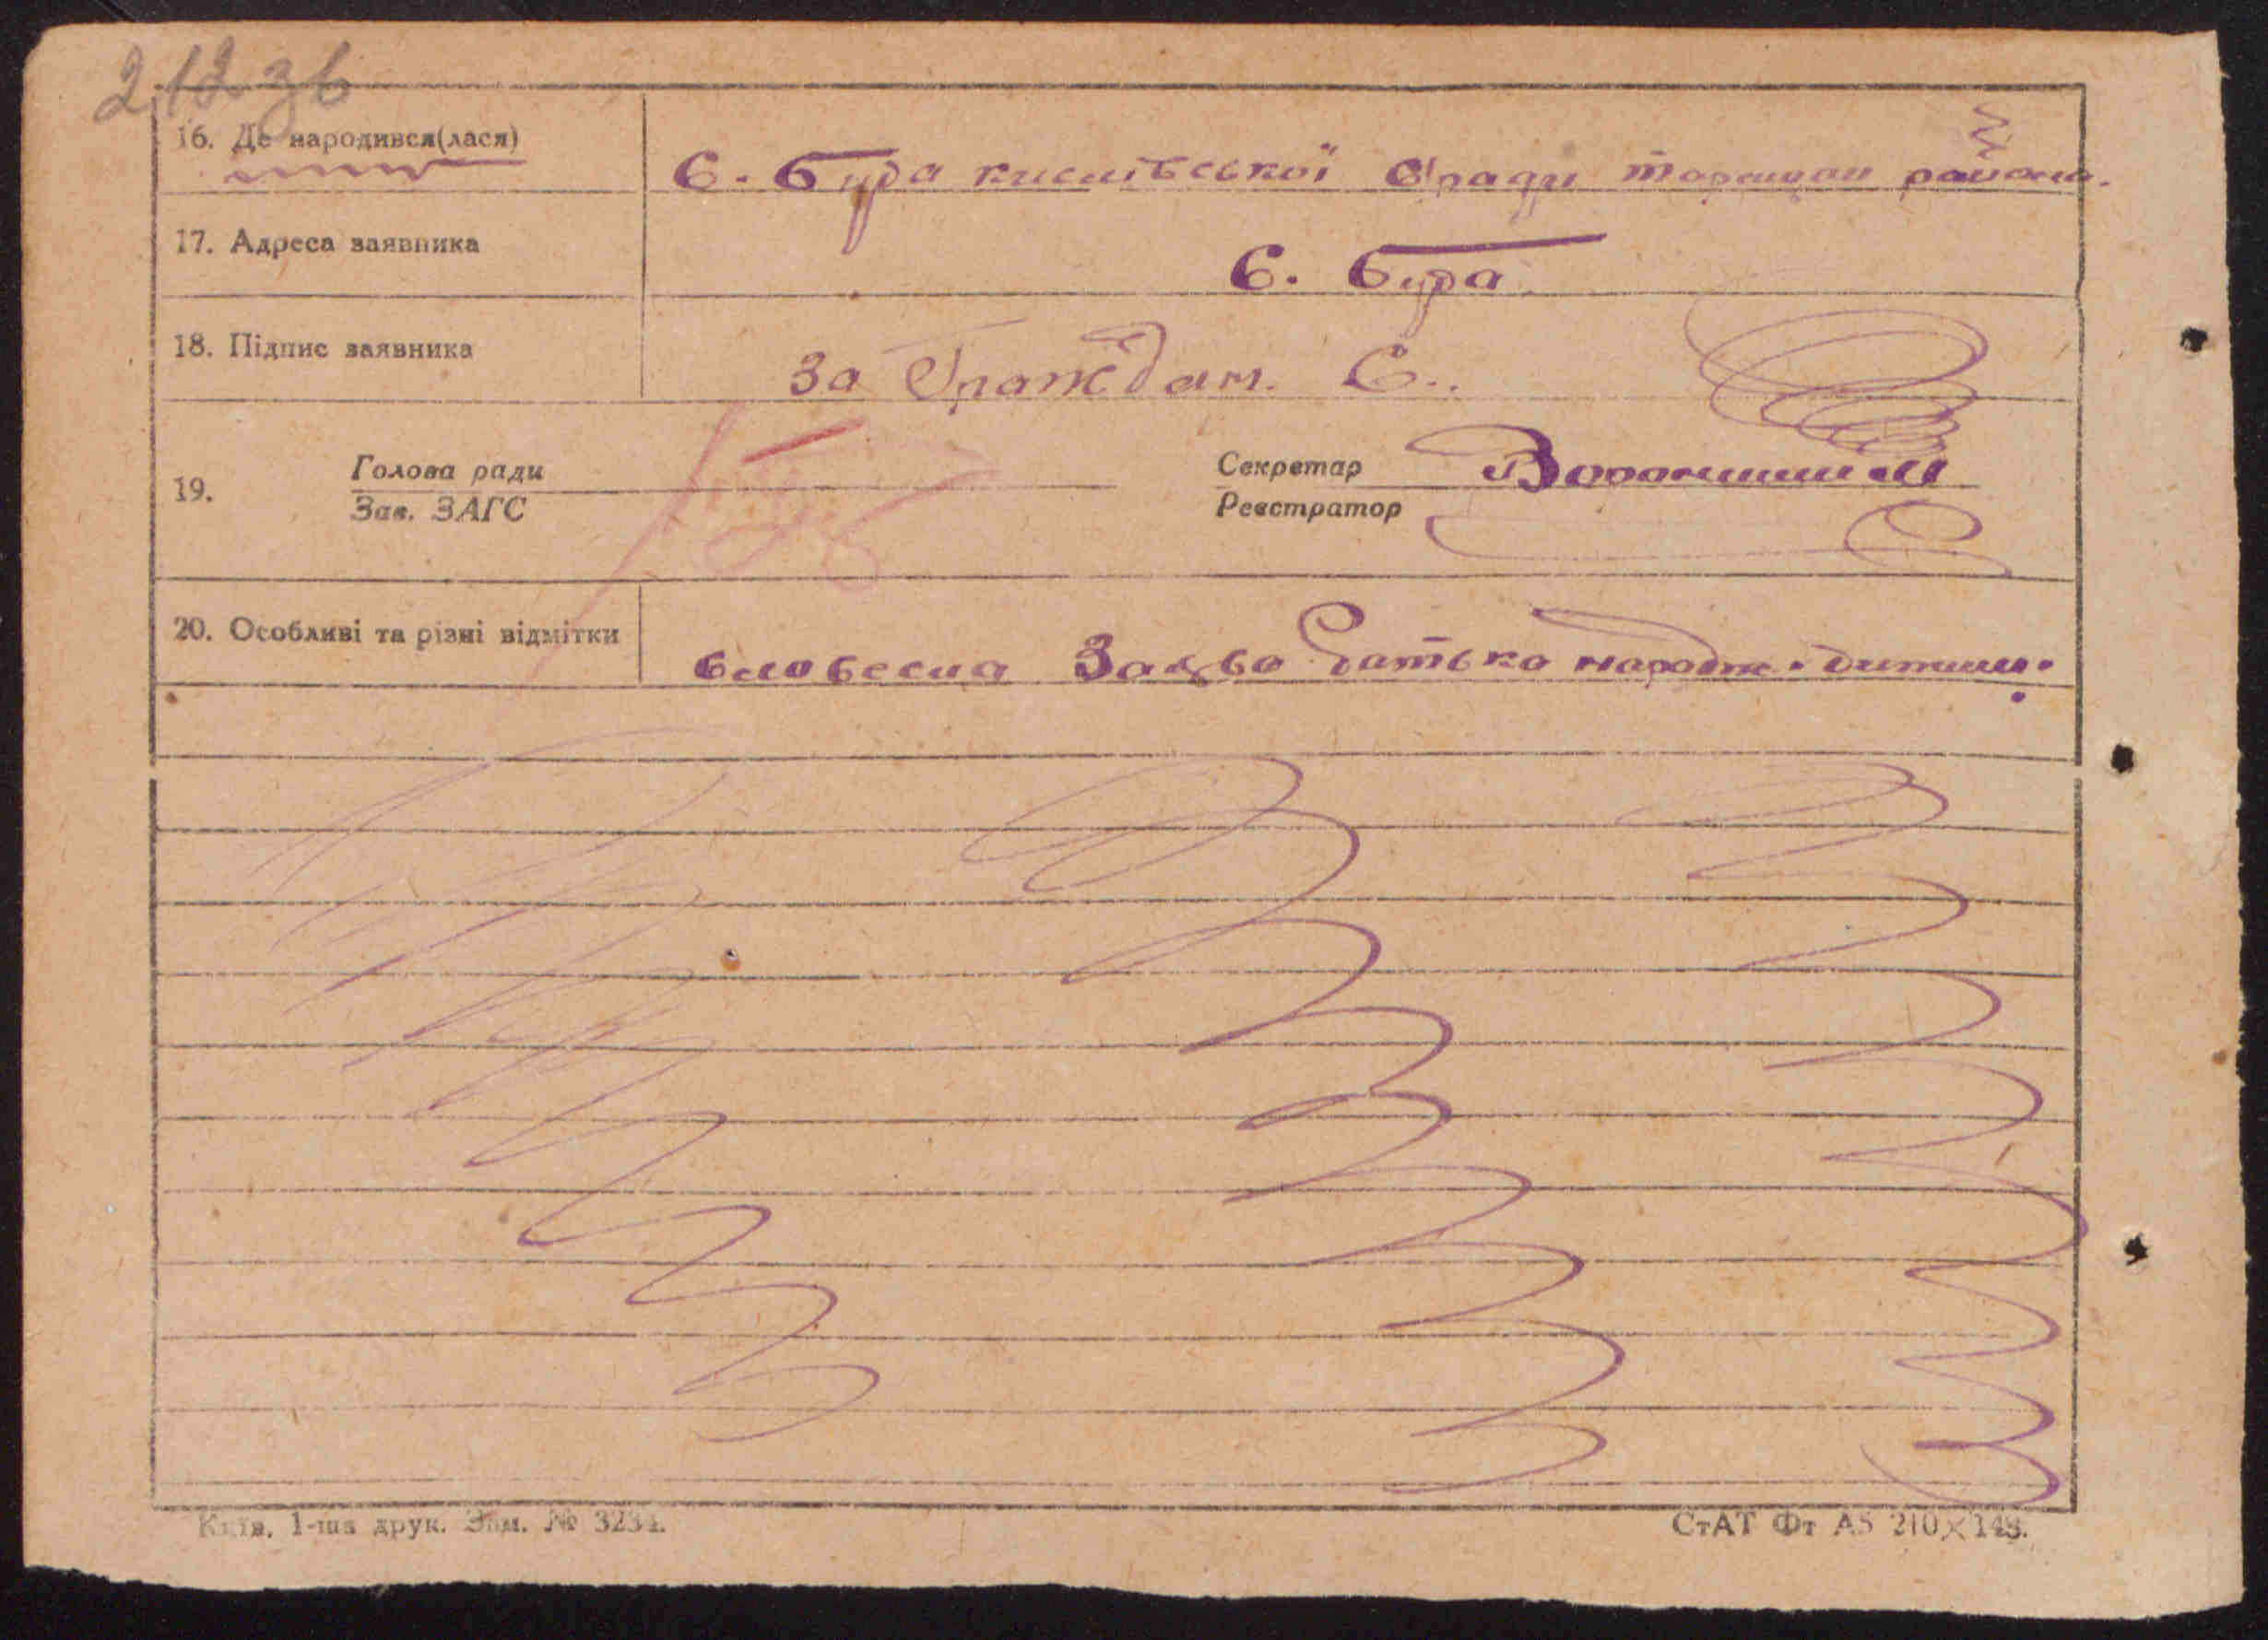 212 зв
16. Де народився(лася) с. Бура кислівської с/ради таращан района.
17. Адреса заявника с. Бура
18. Підпис заявника за Граждан. С..
19. Голова ради Секретар
Зав. ЗАГС Реєстратор
20. Особливі та різні відмітки словесна Заява батько народж. дитини.
Київ, 1-ша друк. Зам. № 3234. СтАТ Фт А5 210×148.